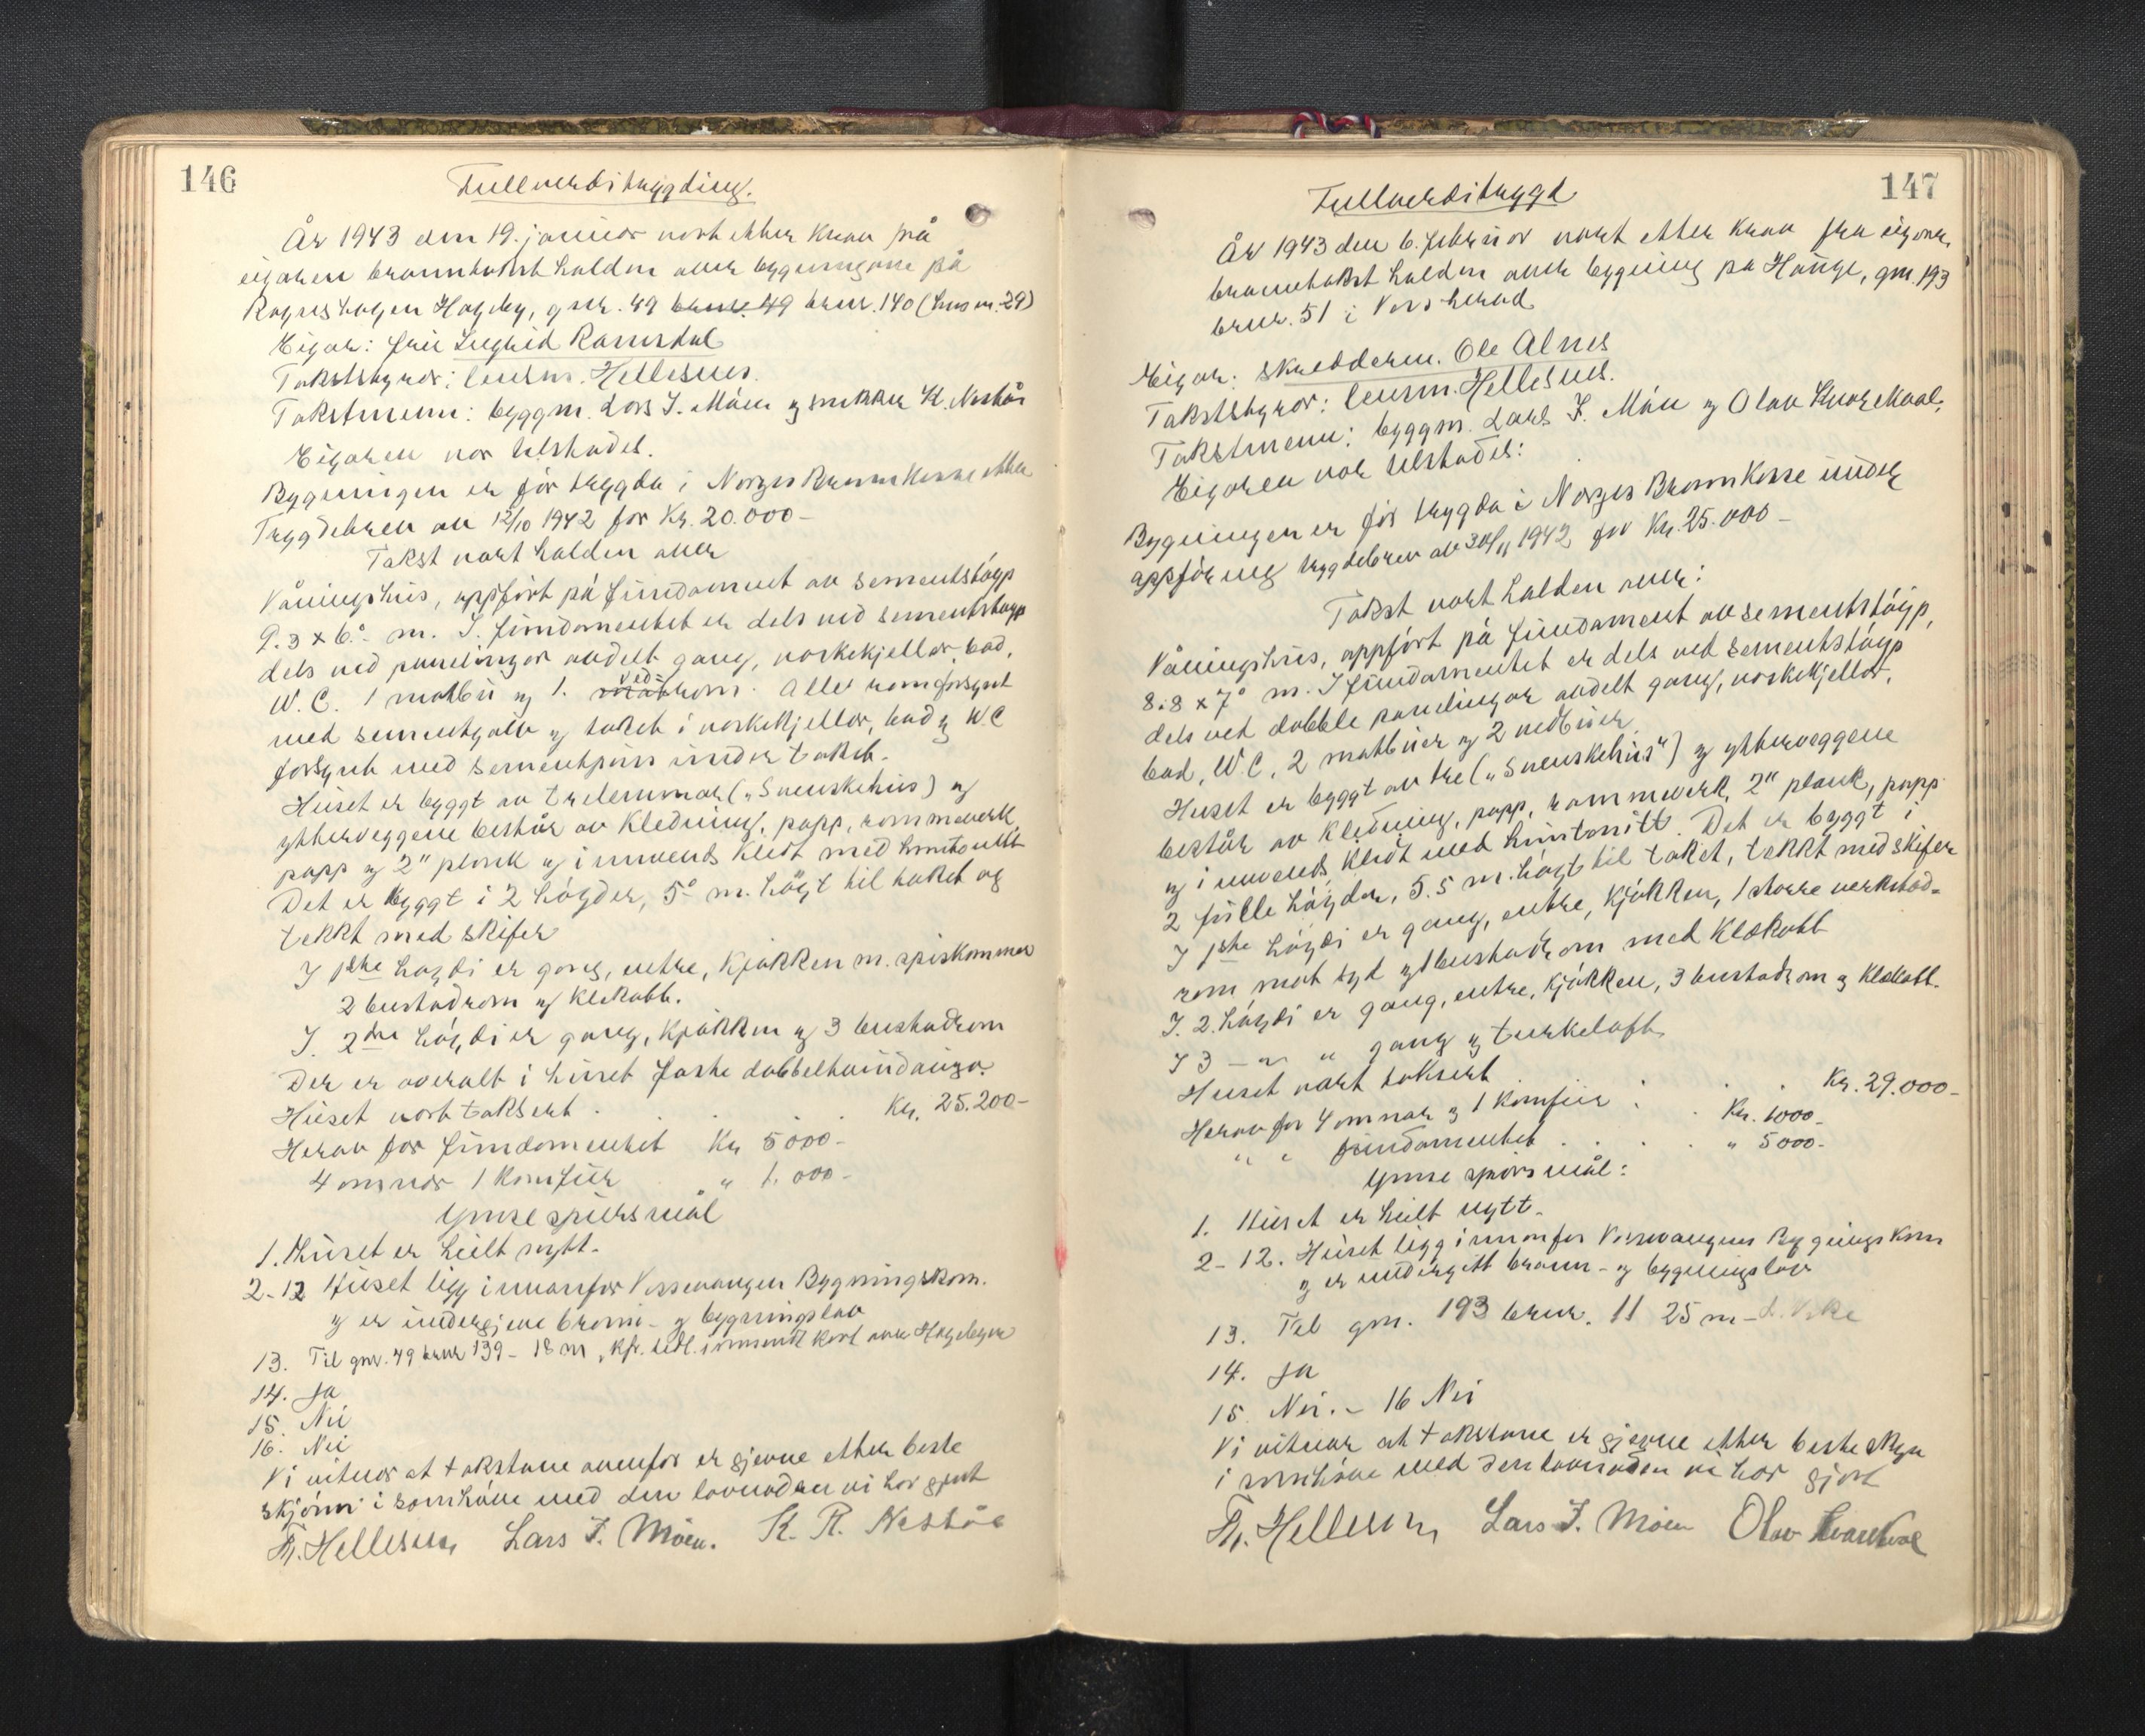 146
Fullverditrygding.
År 1943 den 19. januar vart etter krav frå
eigaren branntakst halden over bygningane på
Rognshagen Hageby, gnr. 49 bnr. 49 bnr. 140 (hus nr. 29)
Eigar: fru Ingrid Ramsdal
Takststyrar: lensm. Hellesnes.
Takstmenn: byggm. Lars J. Måen og snikkar K. Nestås
Eigaren var tilstades.
Bygningen er før trygda i Norges Brannkasse etter
Trygdebrev av 12/10 1942 for Kr. 20.000-
Takst vart halden over
Våningshus, oppført på fundament av sementstøyp
9.3 x 6.0 m. I fundamentet er dels ved sementstøyp
dels ved panelingar avdelt gang, vaskekjellar, bad,
W.C. 1 matbu og 1. vedrom. Alle romforsynt
med sementgolv og taket i vaskekjellar, bad og WC
forsynt med sementpuss under taket.
Huset er byggt av trelemmar ("Svenskehus") og
ytterveggene består av kledning, papp, rammeverk
papp og 2" plank og innvends kledt med huntonitt
Det er byggt i 2 høgder, 5.0 m. høgt til taket og
tekkt med skifer
I 1ste høgdi er gang, entre, kjøkken m. spiskammer
2 bustadrom og klekott.
I. 2dre høgdi er gang, kjøkken og 3 bustadrom
Der er overalt i huset faste dobbelhundaugo.
Huset vart taksert . . . . Kr. 25.200-
Herav for fundamentet Kr 5000-
4 omnar 1 komfur " 1.000-
Ymse spursmål
1. Huset er heilt nytt.
2-12 Huset ligg innanfor Vossevangen Bygningskom.
og er undergjeve brann- og bygningslov
13. Til gnr. 49 bnr 139 - 18 m, kfr. tidl. innsendt kart over Hagebyen
14. Ja
15. Nei
16. Nei
Vi vitnar at takstane ovanfor er gjevne etter beste
skjønn i samhøve med den lovnaden vi har gjort
Th. Hellesnes Lars J. Måen. K. R. Nestås
147
Fullverditrygd
År 1943 den 6. februar vart etter krav fra eigaren
branntakst halden over bygning på Hauge, gnr. 193
bnr. 51 i Voss herad
Eigar: skreddarm. Ole Alnes
Takststyrar: lensm. Hellesnes.
Takstmenn: byggm. Lars J. Måen og Olav Kvarekval.
Eigaren var tilstades:
Bygningen er før trygda i Norges Brannkasse under
oppføring trygdebrev av 30/11 1942 for Kr. 25.000-
Takst vart halden over:
Våningshus, oppført på fundament av sementstøyp,
8.8 x 7.0 m. I fundamentet er dels ved sementstøyp
dels ved dobble panelingar avdelt gang, vaskekjellar,
bad, W.C, 2 matbuer og 2 vedbuer.
Huset er byggt av tre ("Svenskehus") og ytterveggene
består av kledning, papp, rammeverk, 2" plank, papp
og innvends kledt med huntonitt. Det er byggt i
2 fulle høgder, 5.5 m. høgt til taket, tekkt med skifer
I 1ste høgdi er gang, entre, kjøkken, 1 større verkstad-
rom mot syd og 1 bustadrom med klekott
I. 2. høgdi er gang, entre, kjøkken, 3 bustadrom og klekott.
I 3 — " — " gang og turkeloft
Huset vart taksert . . . . Kr. 29.000-
Herav for 4 omnar og 1 komfur . . . Kr. 1000-
" " fundamentet . . . . " 5000-
Ymse spørsmål:
1. Huset er heilt nytt.
2-12. Huset ligg innanfor Vossevangen Bygningskom
og er undergitt brann- og bygningslov
13. Til gnr. 193 bnr. 11 25 m -
14. Ja
15. Nei. - 16 Nei
Vi vitnar at takstane er gjevne etter beste skyn
i samhøve med den lovnaden vi har gjort
Th. Hellesnes Lars J. Måen Olav Kvarekval